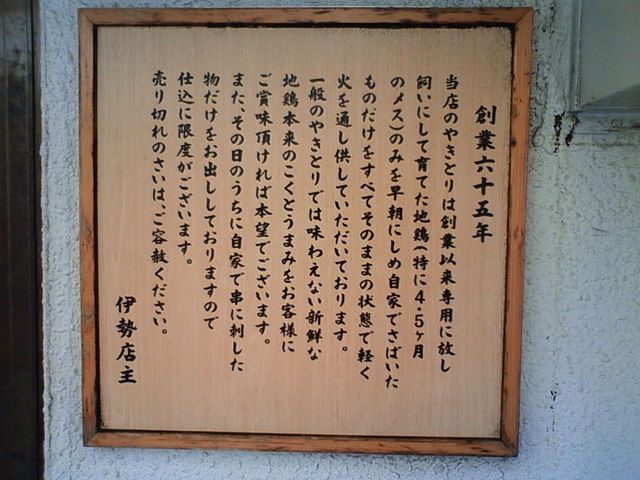 創業六十五年
当店のやきとりは創業以来専用に放し
飼いにして育てた地鶏(特に4・5ヶ月
のメス)のみを早朝にしめ自家でさばいた
ものだけをすべてそのままの状態で軽く
火を通し供していただいております。
一般のやきとりでは味わえない新鮮な
地鶏本来のこくとうまみをお客様に
ご賞味頂ければ本望でございます。
また、その日のうちに自家で串に刺した
物だけをお出ししておりますので
仕込に限度がございます。
売り切れのさいは、ご容赦ください。
伊勢店主